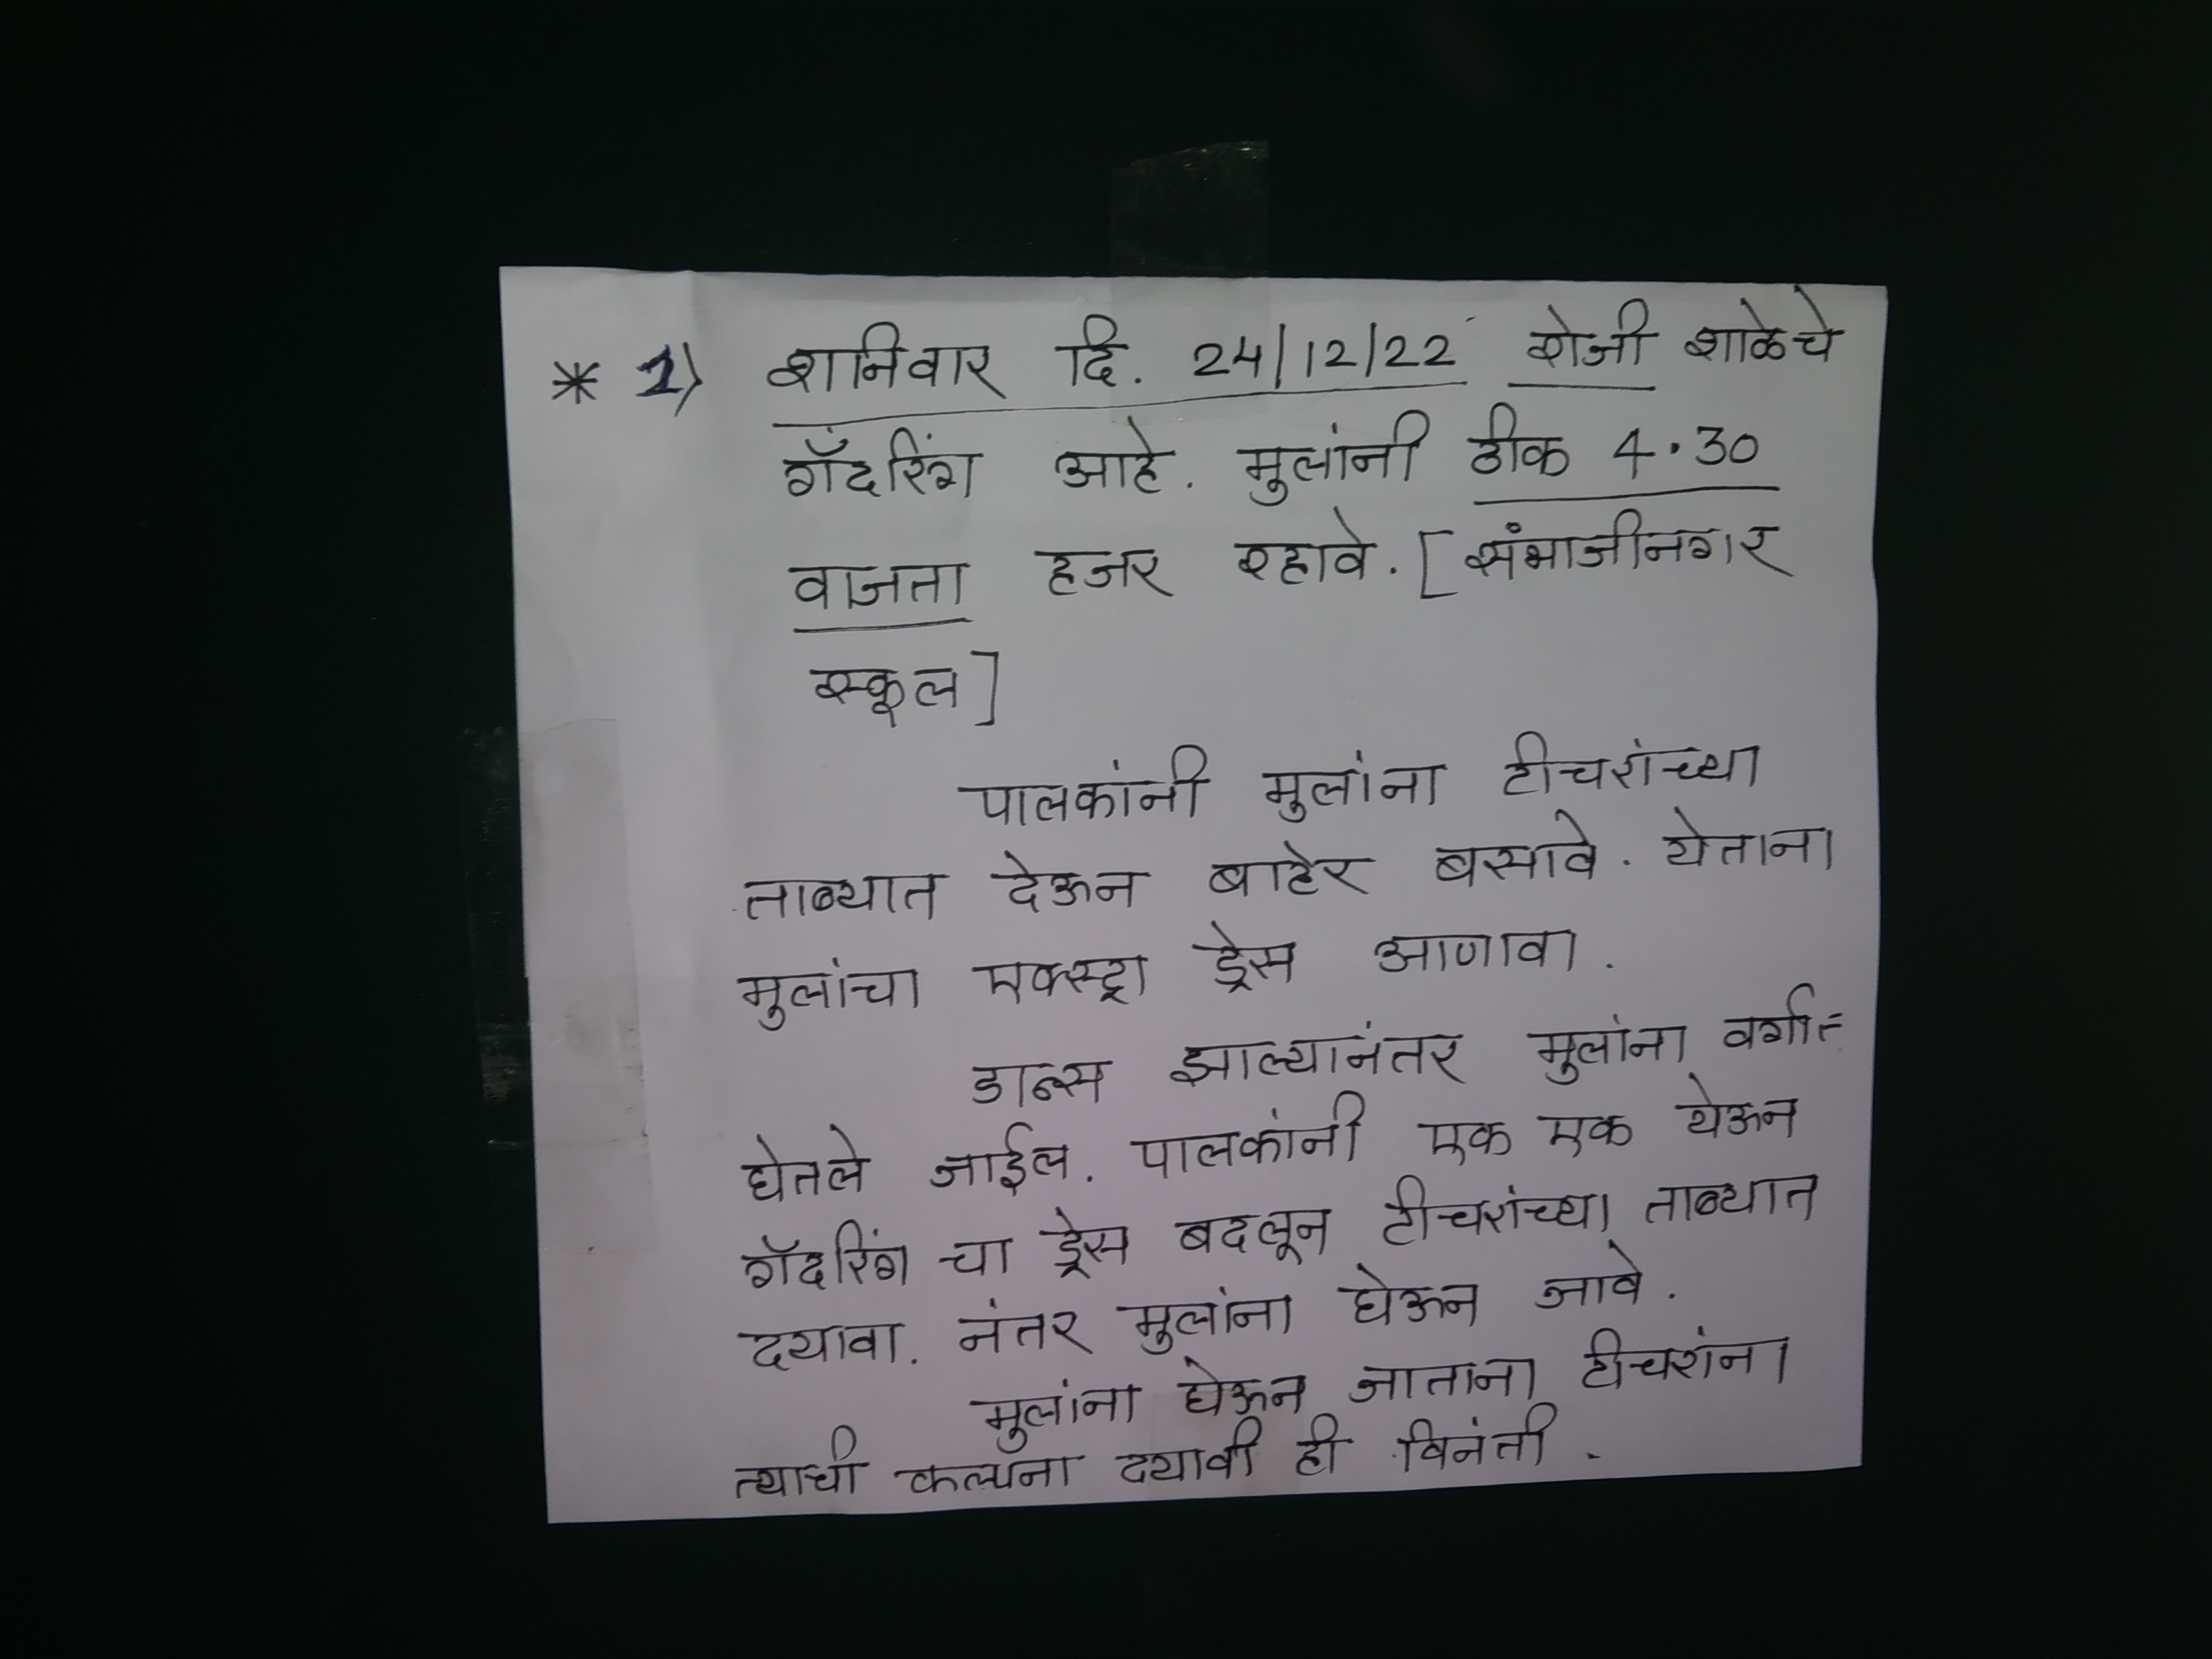 * 1) शनिवार दि. 24/12/22 रोजी शाळेचे
गॅदरिंग आहे. मुलांनी ठीक 4.30
वाजता हजर रहावे. [संभाजीनगर
स्कूल]
पालकांनी मुलांना टीचरांच्या
ताब्यात देऊन बाहेर बसावे. येताना
मुलांचा एक्स्ट्रा ड्रेस आणावा.
डान्स झाल्यानंतर मुलांना वर्गात
घेतले जाईल. पालकांनी एक एक येऊन
गॅदरिंग चा ड्रेस बदलून टीचरांच्या ताब्यात
दयावा. नंतर मुलांना घेऊन जावे.
मुलांना घेऊन जाताना टीचरांना
त्याची कल्पना दयावी ही विनंती.